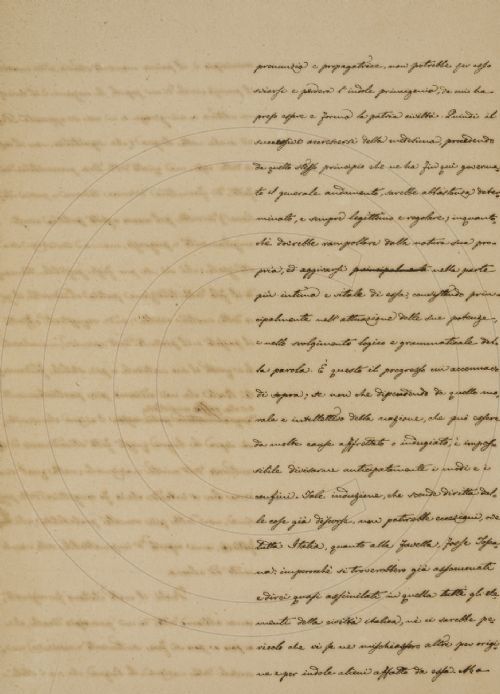 pronunzia e propagatrice, non potrebbe per esso
viarsi e perdere l'indole primigenia, da cui ha
preso essere e forma la patria civiltà. Quindi il
successivo accrescersi della medesima, procedendo
da quello stesso principio che ne ha fin qui governa-
to il generale andamento, sarebbe abbastanza deter-
minato, e sempre legittimo e regolare; inquanto-
ché dovrebbe rampollare dalla natura sua pro-
pria, ed aggirarsi principalmente nella parte
più intima e vitale di essa; consistendo prin-
cipalmente nell'attuazione delle sue potenze,
e nello svolgimento logico e grammaticale del-
la parola. È questo il progresso cui accennai
di sopra; se non che dipendendo da quello mo-
rale e intellettivo della nazione, che può essere
da molte cause affrettato o indugiato, è impos-
sibile divisarne anticipatamente i modi e i
confini. Tale induzione, che scende diretta dal-
le cose già discorse, non patirebbe eccezioni, ove
tutta Italia, quanto alla favella, fosse Tosca-
na: imperocchè si troverebbero già assommati
e direi quasi assimilati in quella tutti gli ele-
menti della civiltà italica, nè ci sarebbe pe-
ricolo che vi se ne mischiassero altri per origi-
ne e per indole alieni affatto da essa. Ma